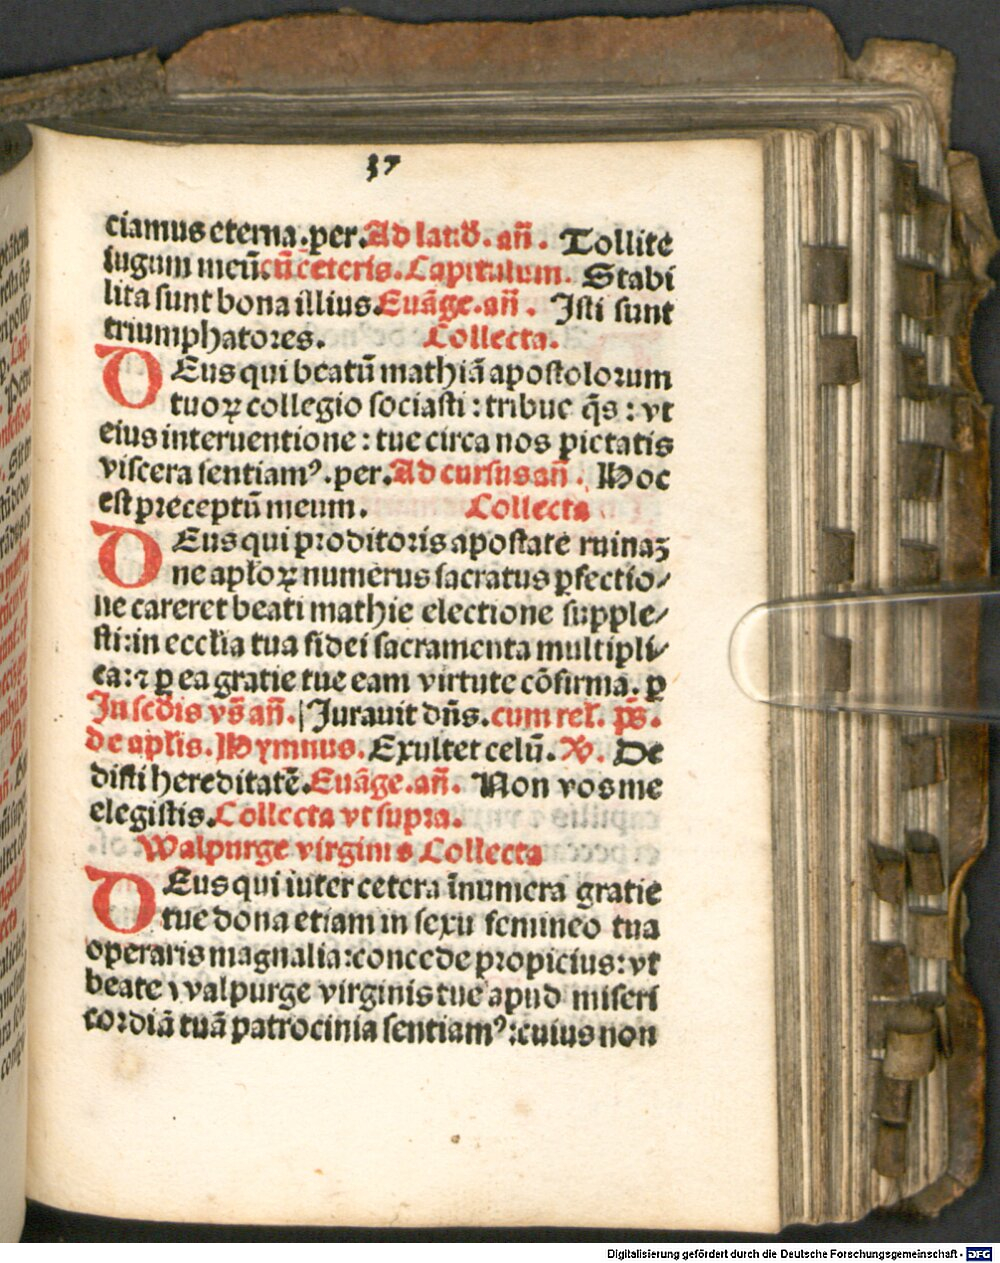 37
ciamus eterna.per.Ad laud. an̄. Tollite
iugum meū cū ceteris. Capitulum. Stabi
lita sunt bona illius. Euāge. an̄. Isti sunt
triumphatores. Collecta.
DEus qui beatū mathiā apostolorum
tuoꝝ collegio sociasti : tribue q̄s : vt
eius interuentione : tue circa nos pietatis
viscera sentiamꝰ.per. Ad cursus an̄. Hoc
est preceptū meum. Collecta
DEus qui proditoris apostate ruinaꝫ
ne aplōꝝ numerus sacratus ꝑfectio⸗
ne careret beati mathie electione supple⸗
sti:in ecclīa tua fidei sacramenta multipli⸗
ca:⁊ ꝑ ea gratie tue eam virtute cōfirma. ꝑ
In scdis vs̄ an̄. Jurauit dn̄s. cum rel. ps̄.
de aplīs. Hymnus. Exultet celū. V. De
disti hereditatē. Euāge. an̄. Non vos me
elegistis. Collecta vt supra.
Walpurge virginis Collecta
DEus qui inter cetera īnumera gratie
tue dona etiam in sexu femineo tua
operaris magnalia:concede propicius:vt
beate walpurge virginis tue apud miseri
cordiā tuā patrocinia sentiamꝰ:cuius non
Digitalisierung gefördert durch die Deutsche Forschungsgemeinschaft - DFG